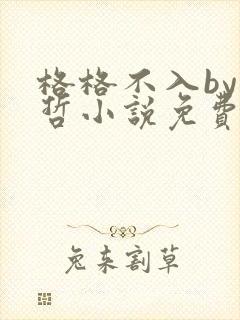 格格不入by
哲小說免費
兔来割草